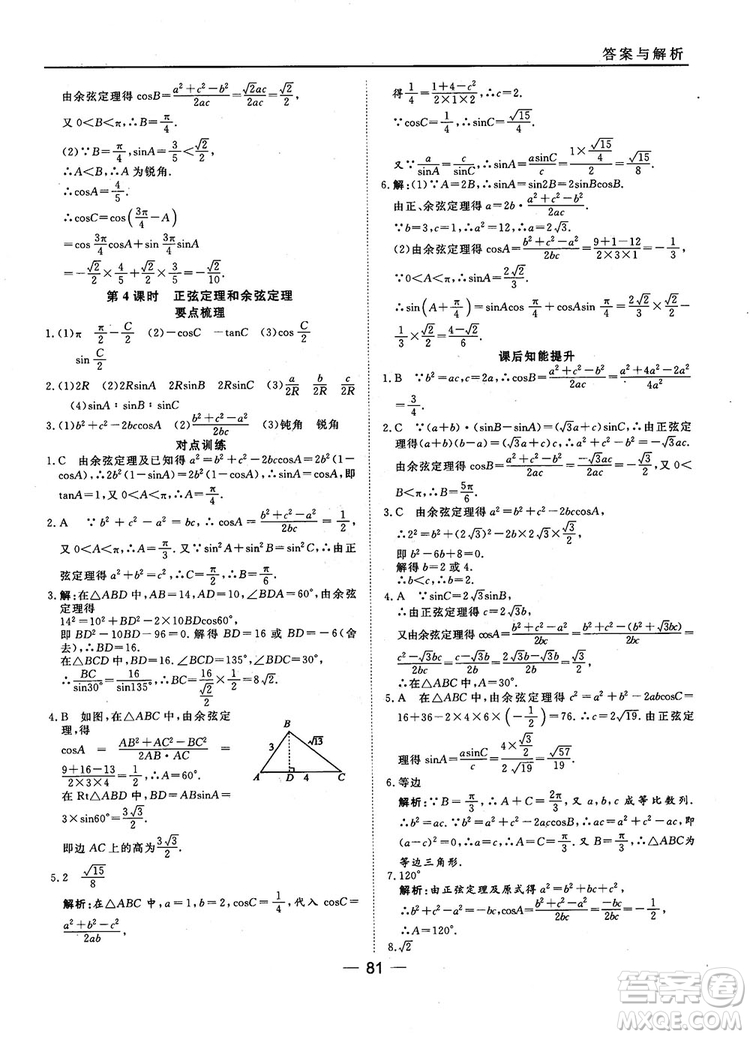 答案与解析
由余弦定理得 cosB=\frac{a²+c²-b²}{2ac}=\frac{√2ac}{2ac}=\frac{√2}{2},
又 0<B<π,∴B=\frac{π}{4}.
(2)∵B=\frac{π}{4},sinA=\frac{3}{5}<\frac{√2}{2},
∴A<B,∴A 为锐角.
∴cosA=\frac{4}{5}.
∴cosC=cos(\frac{3π}{4}-A)
=cos\frac{3π}{4}cosA+sin\frac{3π}{4}sinA
=-\frac{√2}{2}×\frac{4}{5}+\frac{√2}{2}×\frac{3}{5}=-\frac{√2}{10}.
第 4 课时 正弦定理和余弦定理
要点梳理
1.(1)π \frac{π}{2}-\frac{C}{2} (2)-cosC -tanC (3)cos\frac{C}{2}
sin\frac{C}{2}
2.(1)2R (2)2RsinA 2RsinB 2RsinC (3)\frac{a}{2R} \frac{b}{2R} \frac{c}{2R}
(4)sinA∶sinB∶sinC
3.(1)b²+c²-2bccosA (2)\frac{b²+c²-a²}{2bc} (3)钝角 锐角
对点训练
1.C 由余弦定理及已知得 a²=b²+c²-2bccosA=2b²(1-
cosA),∴2b²(1-sinA)=2b²(1-cosA),∴sinA=cosA,即
tanA=1,又 0<A<π,∴A=\frac{π}{4}.
2.A ∵b²+c²-a²=bc,∴cosA=\frac{b²+c²-a²}{2bc}=\frac{1}{2},
又 0<A<π,∴A=\frac{π}{3}.又∵sin²A+sin²B=sin²C,∴由正
弦定理得 a²+b²=c²,∴C=\frac{π}{2},∴B=\frac{π}{6}.
3.解:在△ABD 中,AD=10,AB=14,∠BDA=60°,由余弦
定理得
14²=10²+BD²-2×10BDcos60°,
即 BD²-10BD-96=0,∴BD=16 或 BD=-6(舍
去),∴在△BCD 中,∠BCD=135°,∠CDB=30°,
∴\frac{BC}{sin30°}=\frac{16}{sin135°},∴BC=\frac{16}{\frac{√2}{2}}×\frac{1}{2}=8√2.
4.B 如图,在△ABC 中,由余弦定
理,得
cosA=\frac{AB²+AC²-BC²}{2AB·AC}=
\frac{9+16-13}{2×3×4}=\frac{1}{2},∴A=60°.
B
3
√13
A D 4 C
在 Rt△ABD 中,BD=ABsinA=
3×sin60°=\frac{3√3}{2}.
即边 AC 上的高为\frac{3√3}{2}.
5.2 \frac{√15}{8}
解析:在△ABC 中,a=1,b=2,cosC=\frac{1}{4},代入 cosC=
\frac{a²+b²-c²}{2ab},
得\frac{1}{4}=\frac{1+4-c²}{2×1×2},∴c=2.
∵cosC=\frac{1}{4},∴sinC=\frac{√15}{4}.
又∵\frac{a}{sinA}=\frac{c}{sinC},∴sinA=\frac{asinC}{c}=\frac{1×\frac{√15}{4}}{2}=\frac{√15}{8}.
6.解:(1)∵A=2B,∴sinA=sin2B=2sinBcosB.
由正、余弦定理得 a=2b·\frac{a²+c²-b²}{2ac}.
∵b=3,c=1,∴a²=12,∴a=2√3.
(2)由余弦定理得 cosA=\frac{b²+c²-a²}{2bc}=\frac{9+1-12}{2×3×1}=-\frac{1}{3},
∵0<A<π,∴sinA=\frac{2√2}{3}.
∴sin(A+\frac{π}{4})=sinAcos\frac{π}{4}+cosAsin\frac{π}{4}=\frac{2√2}{3}×\frac{√2}{2}-
\frac{1}{3}×\frac{√2}{2}=\frac{4-√2}{6}.
课后知能提升
1.B ∵b²=ac,c=2a,∴cosB=\frac{a²+c²-b²}{2ac}=\frac{a²+4a²-2a²}{4a²}
=\frac{3}{4}.
2.C ∵(a+b)·(sinB-sinA)=(√3a+c)sinC,∴由正弦定
理得(a+b)(b-a)=(√3a+c)c,即 b²-a²=√3ac+c²,
∴a²+c²-b²=-√3ac,∴cosB=-\frac{√3}{2},又∵0<
B<π,∴B=\frac{5π}{6}.
3.C 由余弦定理得 a²=b²+c²-2bccosA,
∴2²=b²+(2√3)²-2×b×2√3×\frac{√3}{2},
即 b²-6b+8=0.
解得 b=2 或 4.
∵b<c,∴b=2.
4.A ∵sinC=2√3sinB,
∴由正弦定理得 c=2√3b,
又由余弦定理得 cosA=\frac{b²+c²-a²}{2bc}=\frac{b²+c²-(b²+√3bc)}{2bc}
=\frac{c²-√3bc}{2bc}=\frac{c-√3b}{2b}=\frac{2√3b-√3b}{2b}=\frac{√3}{2},
∴A=30°.
5.A 在△ABC 中,由余弦定理得 c²=a²+b²-2abcosC=
16+36-2×4×6×(-\frac{1}{2})=76.∴c=2√19.由正弦定
理得 sinA=\frac{asinC}{c}=\frac{4×\frac{√3}{2}}{2√19}=\frac{√57}{19}.
6.等边
解析:∵B=\frac{π}{3},∴A+C=\frac{2π}{3}.又a,b,c成等比数列.
∴b²=ac,又∵b²=a²+c²-2accosB=a²+c²-ac,即
(a-c)²=0.∴a=c,∴A=C=\frac{π}{3}.∴△ABC 为
等边三角形.
7.120°
解析:由正弦定理及原式得 a²=b²+bc+c²,
∵a²=b²+c²-2bccosA,∴cosA=\frac{b²+c²-a²}{2bc}=-\frac{1}{2},
∴A=120°
8.√2
81
作业精灵
MXQE.COM